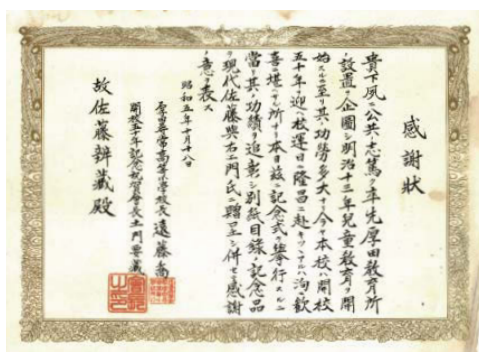 感謝狀
貴下夙ニ公共ノ志篤ク率先厚田教育所
ノ設置ヲ企圖シ明治十三年兒童教育ヲ開
始スルニ至リ其ノ功勞多大ナリ今ヤ本校ハ開校
五十年ヲ迎ヘ校運日ニ隆昌ニ赴キツヽアルハ洵ニ歡
喜ニ堪ヘサル所ナリ本日茲ニ記念式ヲ擧行スルニ
當リ其ノ功績ヲ追彰シ別紙目錄ノ記念品
ヲ現代佐藤與右エ門氏ニ贈呈シ併セテ感謝
ノ意ヲ表ス
昭和五年十月十八日
厚田尋常高等小學校長 遠藤
開校五十年記念祝賀會長 土門
故佐藤辨藏殿